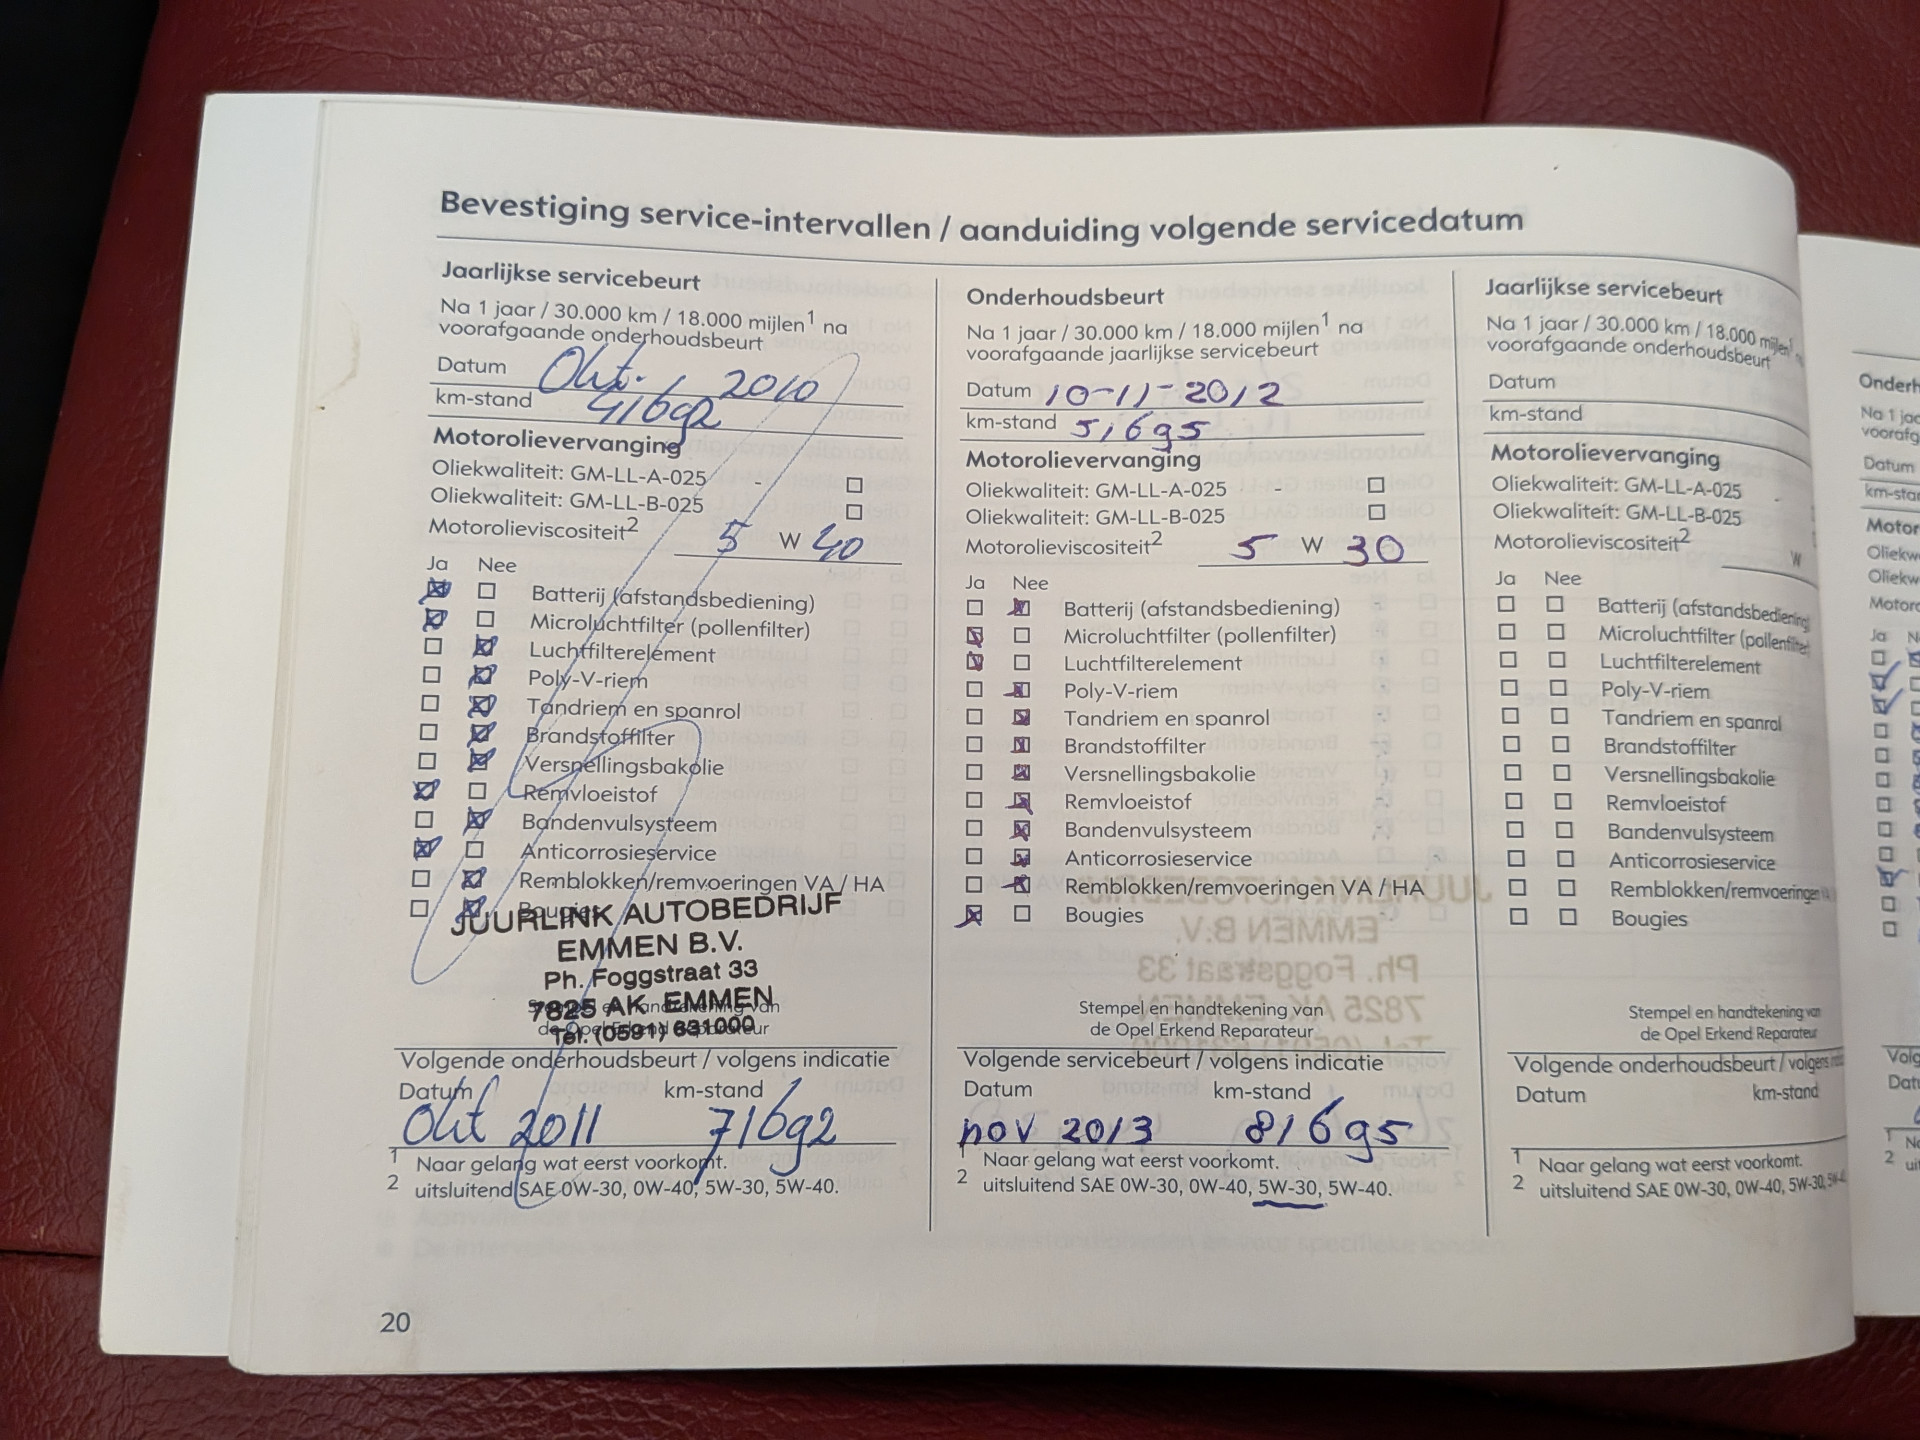 Bevestiging service-intervallen / aanduiding volgende servicedatum
Jaarlijkse servicebeurt
Na 1 jaar / 30.000 km / 18.000 mijlen1 na
voorafgaande onderhoudsbeurt
Datum Okt. 2010
km-stand 41692
Motorolievervanging
Oliekwaliteit: GM-LL-A-025 - ☐
Oliekwaliteit: GM-LL-B-025 ☐
Motorolieviscositeit2 5 W 40
Ja Nee
☒ ☐ Batterij (afstandsbediening)
☒ ☐ Microluchtfilter (pollenfilter)
☐ ☒ Luchtfilterelement
☐ ☒ Poly-V-riem
☐ ☒ Tandriem en spanrol
☐ ☒ Brandstoffilter
☐ ☒ Versnellingsbakolie
☒ ☐ Remvloeistof
☐ ☒ Bandenvulsysteem
☒ ☐ Anticorrosieservice
☐ ☒ Remblokken/remvoeringen VA / HA
☐ ☒ Bougies
JUURLINK AUTOBEDRIJF
EMMEN B.V.
Ph. Foggstraat 33
7825 AK EMMEN
Tel. (0591) 631000
Stempel en handtekening van
de Opel Erkend Reparateur
Volgende onderhoudsbeurt / volgens indicatie
Datum km-stand
Okt 2011 71692
1 Naar gelang wat eerst voorkomt.
2 uitsluitend SAE 0W-30, 0W-40, 5W-30, 5W-40.
20
Onderhoudsbeurt
Na 1 jaar / 30.000 km / 18.000 mijlen1 na
voorafgaande jaarlijkse servicebeurt
Datum 10-11-2012
km-stand 51695
Motorolievervanging
Oliekwaliteit: GM-LL-A-025 - ☐
Oliekwaliteit: GM-LL-B-025 ☐
Motorolieviscositeit2 5 W 30
Ja Nee
☐ ☒ Batterij (afstandsbediening)
☒ ☐ Microluchtfilter (pollenfilter)
☒ ☐ Luchtfilterelement
☐ ☒ Poly-V-riem
☐ ☒ Tandriem en spanrol
☐ ☒ Brandstoffilter
☐ ☒ Versnellingsbakolie
☐ ☒ Remvloeistof
☐ ☒ Bandenvulsysteem
☐ ☒ Anticorrosieservice
☐ ☒ Remblokken/remvoeringen VA / HA
☒ ☐ Bougies
Stempel en handtekening van
de Opel Erkend Reparateur
Volgende servicebeurt / volgens indicatie
Datum km-stand
nov 2013 81695
1 Naar gelang wat eerst voorkomt.
2 uitsluitend SAE 0W-30, 0W-40, 5W-30, 5W-40.
Jaarlijkse servicebeurt
Na 1 jaar / 30.000 km / 18.000 mijlen1 na
voorafgaande onderhoudsbeurt
Datum
km-stand
Motorolievervanging
Oliekwaliteit: GM-LL-A-025 -
Oliekwaliteit: GM-LL-B-025
Motorolieviscositeit2 W
Ja Nee
☐ ☐ Batterij (afstandsbediening)
☐ ☐ Microluchtfilter (pollenfilter)
☐ ☐ Luchtfilterelement
☐ ☐ Poly-V-riem
☐ ☐ Tandriem en spanrol
☐ ☐ Brandstoffilter
☐ ☐ Versnellingsbakolie
☐ ☐ Remvloeistof
☐ ☐ Bandenvulsysteem
☐ ☐ Anticorrosieservice
☐ ☐ Remblokken/remvoeringen
☐ ☐ Bougies
Stempel en handtekening van
de Opel Erkend Reparateur
Volgende onderhoudsbeurt / volgens
Datum km-stand
1 Naar gelang wat eerst voorkomt.
2 uitsluitend SAE 0W-30, 0W-40, 5W-30, 5W-4
Onderh
Na 1 jac
voorafg
Datum
km-star
Motor
Oliekw
Oliekw
Motoro
Ja N
Volg
Datu
1 Na
2 uit